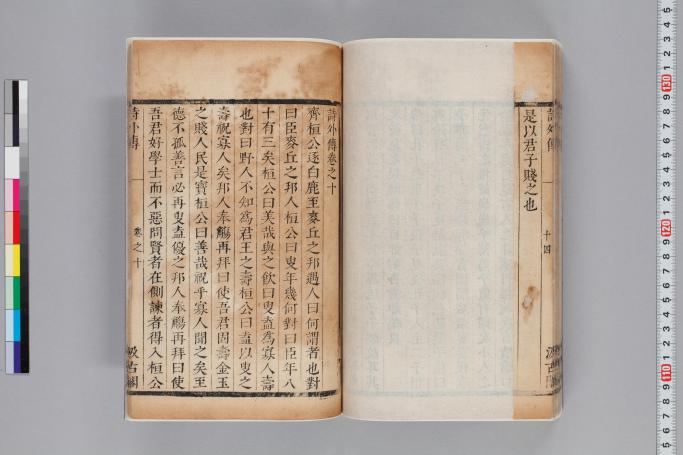 詩外傳
十四
汲古閣
是以君子賤之也
詩外傳卷之十
齊桓公逐白鹿至麥丘之邦遇人曰何謂者也對
曰臣麥丘之邦人桓公曰叟年幾何對曰臣年八
十有三矣桓公曰美哉與之飲曰叟盍爲寡人壽
也對曰野人不知爲君王之壽桓公曰盍以叟之
壽祝寡人矣邦人奉觴再拜曰使吾君固壽金玉
之賤人民是寶桓公曰善哉祝乎寡人聞之矣至
德不孤善言必再叟盍優之邦人奉觴再拜曰使
吾君好學士而不惡問賢者在側諫者得入桓公
詩外傳
卷之十
汲古閣
130
120
110